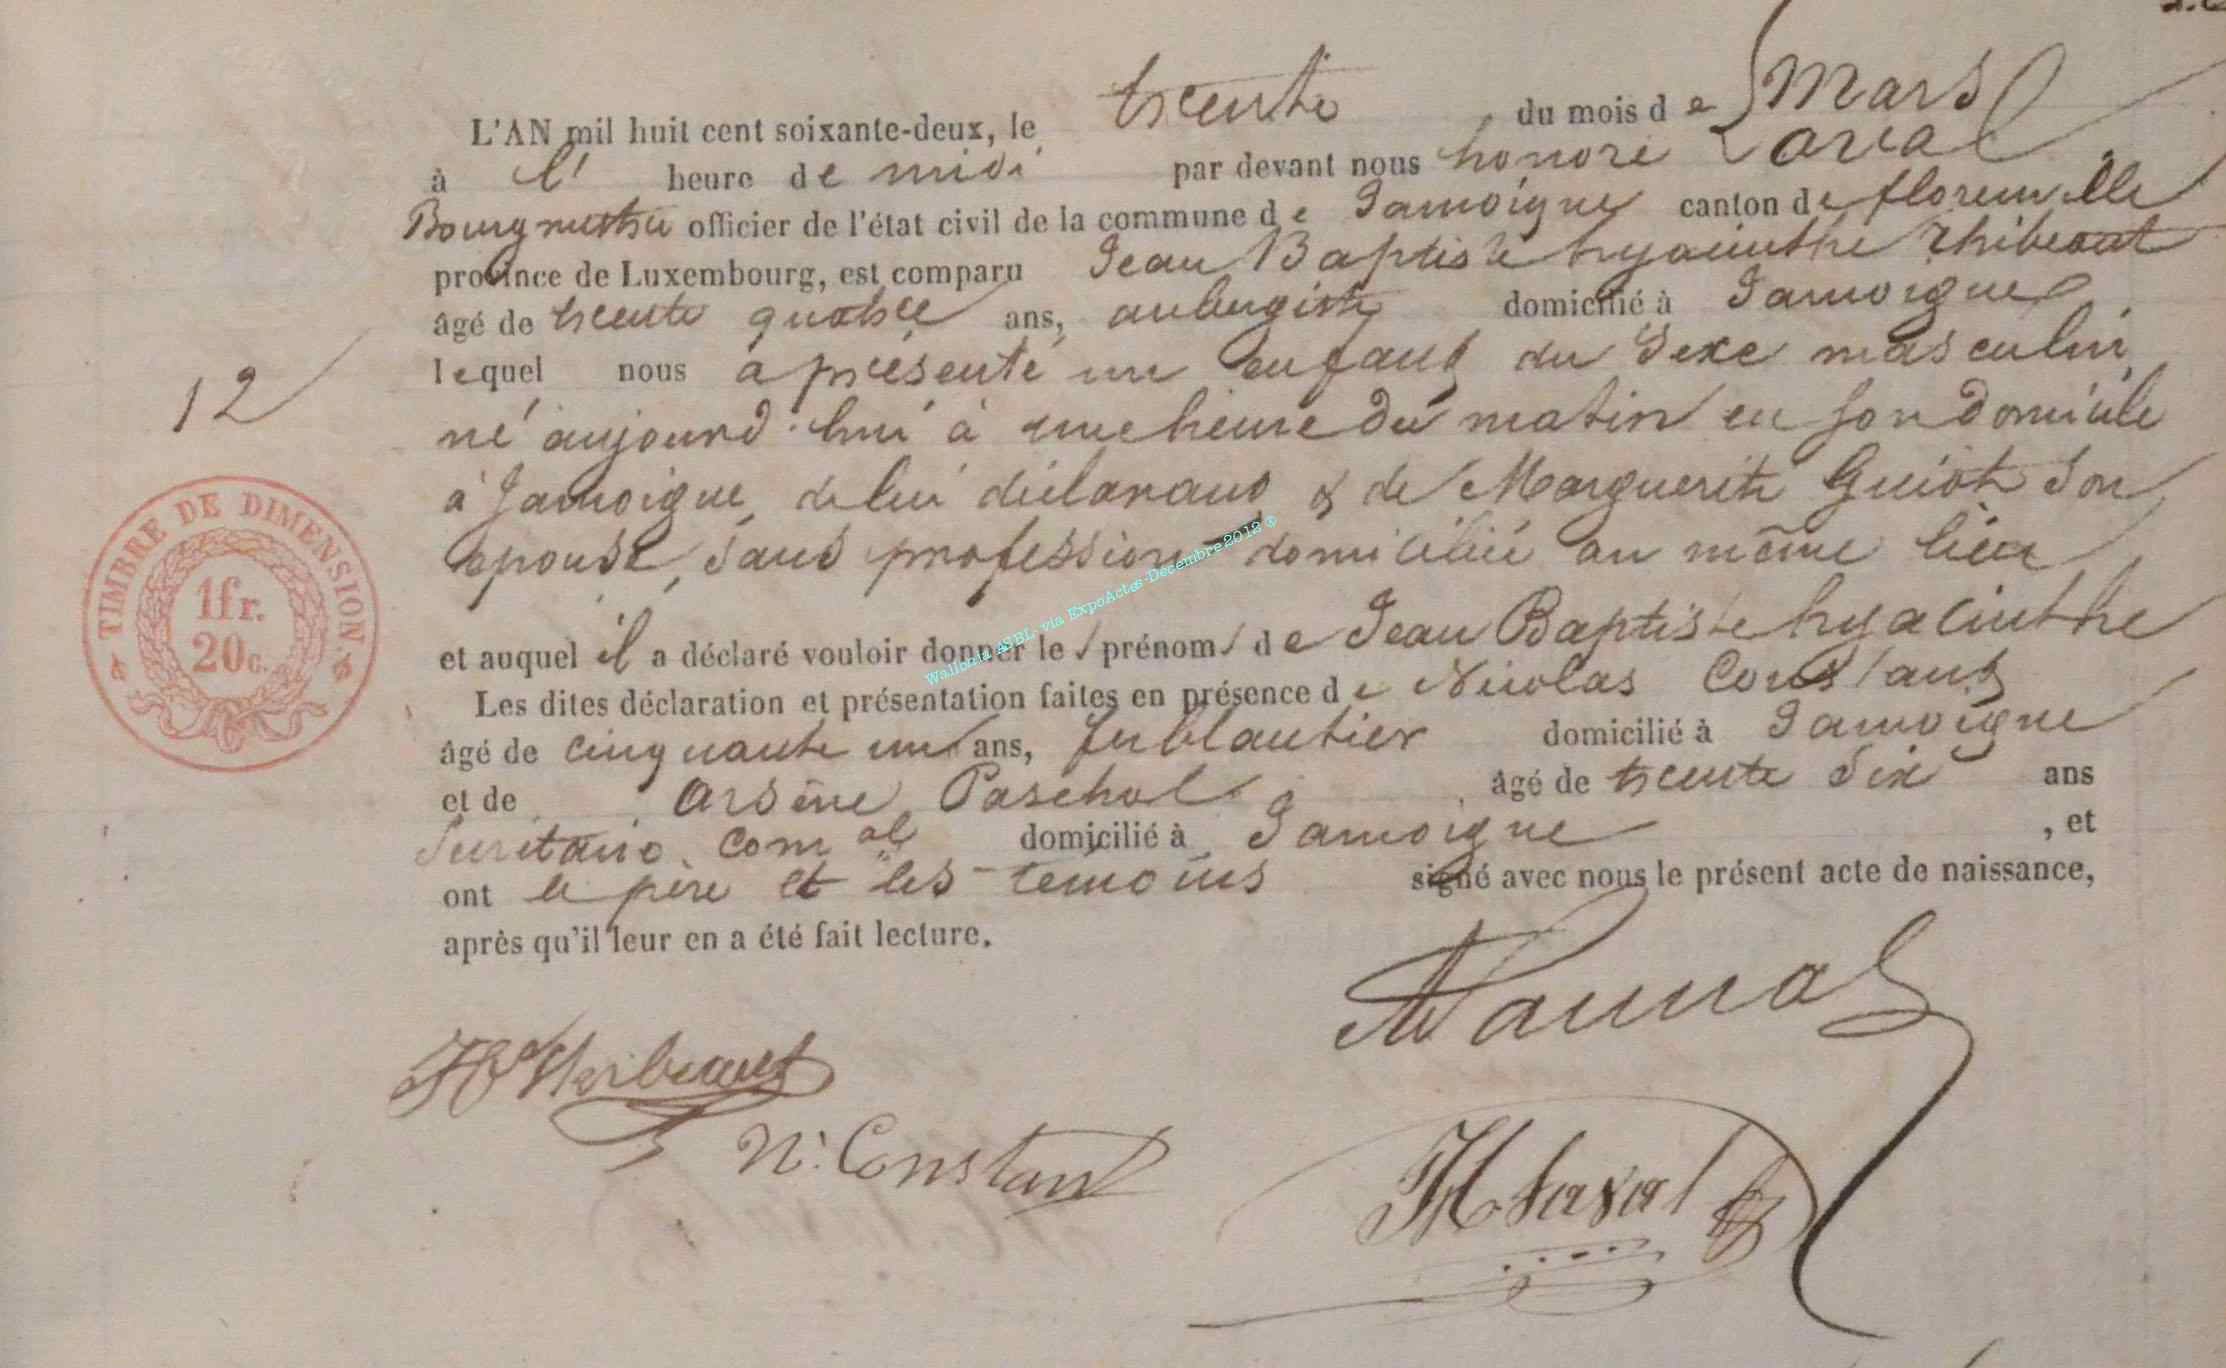 L'AN mil huit cent soixante-deux, le trente du mois de Mars
à l' heure de midi par devant nous honoré Laval
Bourgmestre officier de l'état civil de la commune de Jamoigne canton de florenville
province de Luxembourg, est comparu Jean Baptiste hyacinthe Thibeaut
âgé de trente quatre ans, aubergiste domicilié à Jamoigne
lequel nous a présenté un enfant du Sexe masculin
né aujourd'hui à une heure du matin en son domicile
à Jamoigne, de lui déclarant & de Marguerite Guiot son
epouse, sans profession domiciliée au même lieu
et auquel il a déclaré vouloir donner les prénoms de Jean Baptiste hyacinthe
Les dites déclaration et présentation faites en présence de Nicolas Constant
âgé de cinquante un ans, ferblantier domicilié à Jamoigne
et de Arsène Paschal âgé de trente Six ans
Secrétaire com al domicilié à Jamoigne, et
ont le père et les témoins signé avec nous le présent acte de naissance,
après qu'il leur en a été fait lecture.
12
TIMBRE DE DIMENSION
1fr.
20c.
Wallonia ASBL via ExpoActes-Décembre 2012 ®
N. Constant
H Laval